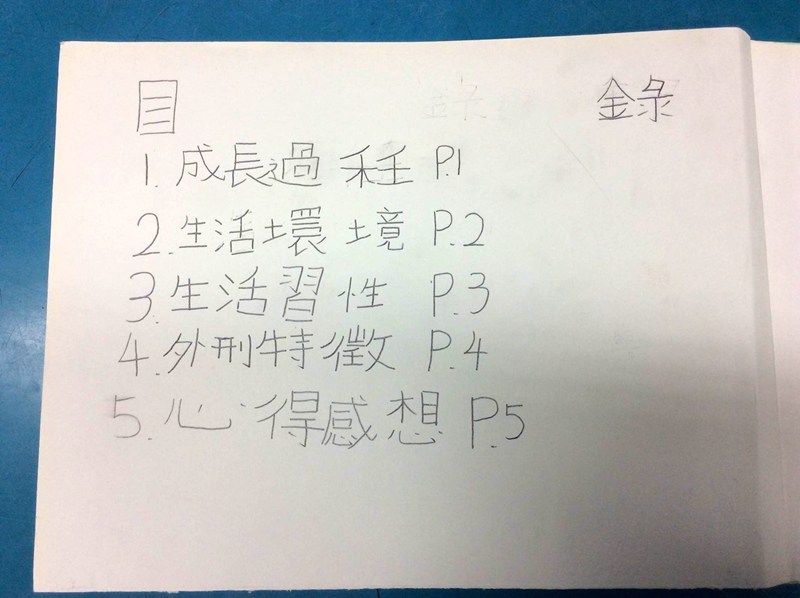 目 錄
1.成長過程 P.1
2.生活環境 P.2
3.生活習性 P.3
4.外刑特徵 P.4
5.心得感想 P.5